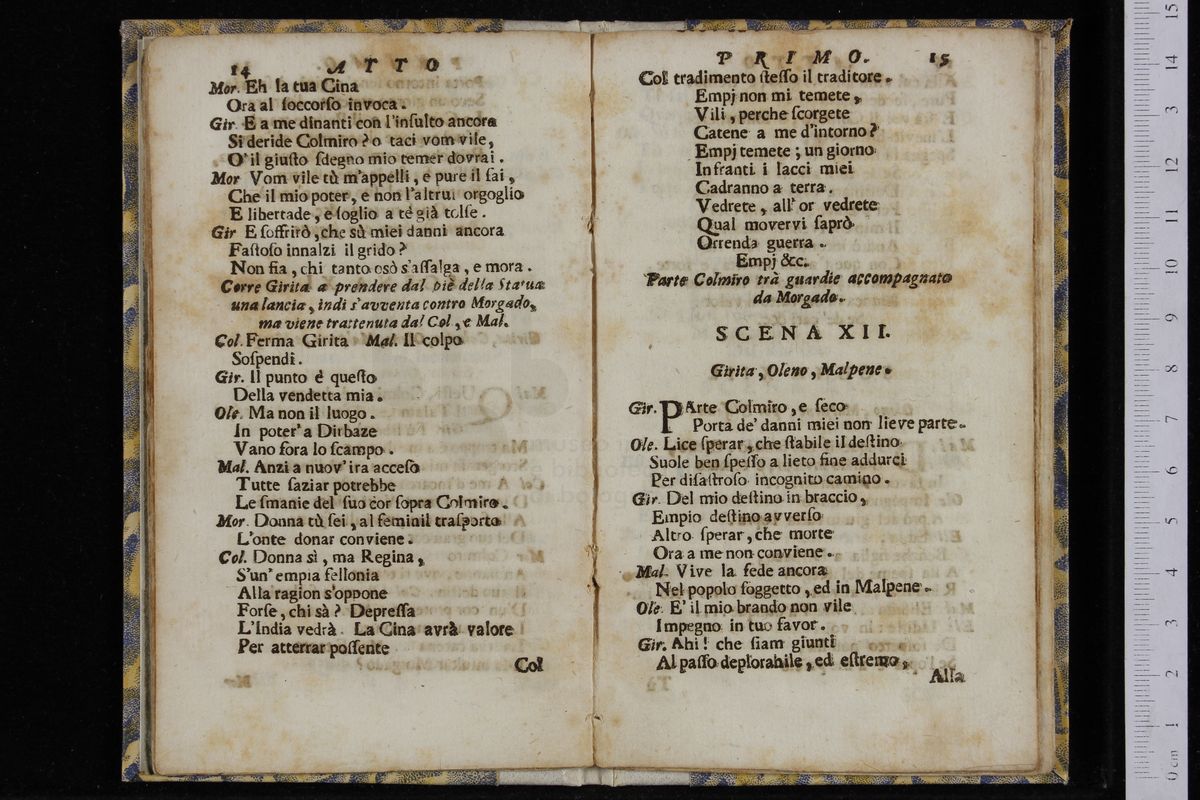 14 ATTO
Mor. Eh la tua Cina
Ora al ſoccorſo invoca.
Gir E a me dinanti con l'inſulto ancora
Si deride Colmiro? o taci vom vile,
O' il giuſto ſdegno mio temer dovrai.
Mor Vom vile tù m'appelli, e pure il ſai,
Che il mio poter, e non l'altrui orgoglio
E libertade, e ſoglio a tè già tolſe.
Gir E ſoffrirò, che sù miei danni ancora
Faſtoſo innalzi il grido?
Non fia, chi tanto osò s'aſſalga, e mora.
Corre Girita a prendere dal piè della Statua
una lancia, indi s'avventa contro Morgado,
ma viene trattenuta dal Col, e Mal.
Col. Ferma Girita Mal. Il colpo
Soſpendi.
Gir. Il punto é queſto
Della vendetta mia.
Ole. Ma non il luogo.
In poter' a Dirbaze
Vano fora lo ſcampo.
Mal. Anzi a nuov' ira acceſo
Tutte ſaziar potrebbe
Le ſmanie del ſuo cor ſopra Colmiro.
Mor. Donna tù ſei, al feminil traſporto
L'onte donar conviene.
Col. Donna sì, ma Regina,
S'un' empia fellonia
Alla ragion s'oppone
Forſe, chi sà? Depreſſa
L'India vedrà. La Cina avrà valore
Per atterrar poſſente
Col
PRIMO. 15
Col tradimento ſteſſo il traditore.
Empj non mi temete,
Vili, perche ſcorgete
Catene a me d'intorno?
Empj temete; un giorno
Infranti i lacci miei
Cadranno a terra.
Vedrete, all' or vedrete
Qual movervi ſaprò
Orrenda guerra.
Empj &c.
Parte Colmiro trà guardie accompagnato
da Morgado.
SCENA XII.
Girita, Oleno, Malpene.
Gir. PArte Colmiro, e ſeco
Porta de' danni miei non lieve parte.
Ole. Lice ſperar, che ſtabile il deſtino
Suole ben ſpeſſo a lieto fine addurci
Per diſaſtroſo incognito camino.
Gir. Del mio deſtino in braccio,
Empio deſtino avverſo
Altro ſperar, che morte
Ora a me non conviene.
Mal. Vive la fede ancora
Nel popolo ſoggetto, ed in Malpene.
Ole. E' il mio brando non vile
Impegno in tuo favor.
Gir. Ahi! che ſiam giunti
Al paſſo deplorabile, ed eſtremo,
Alla